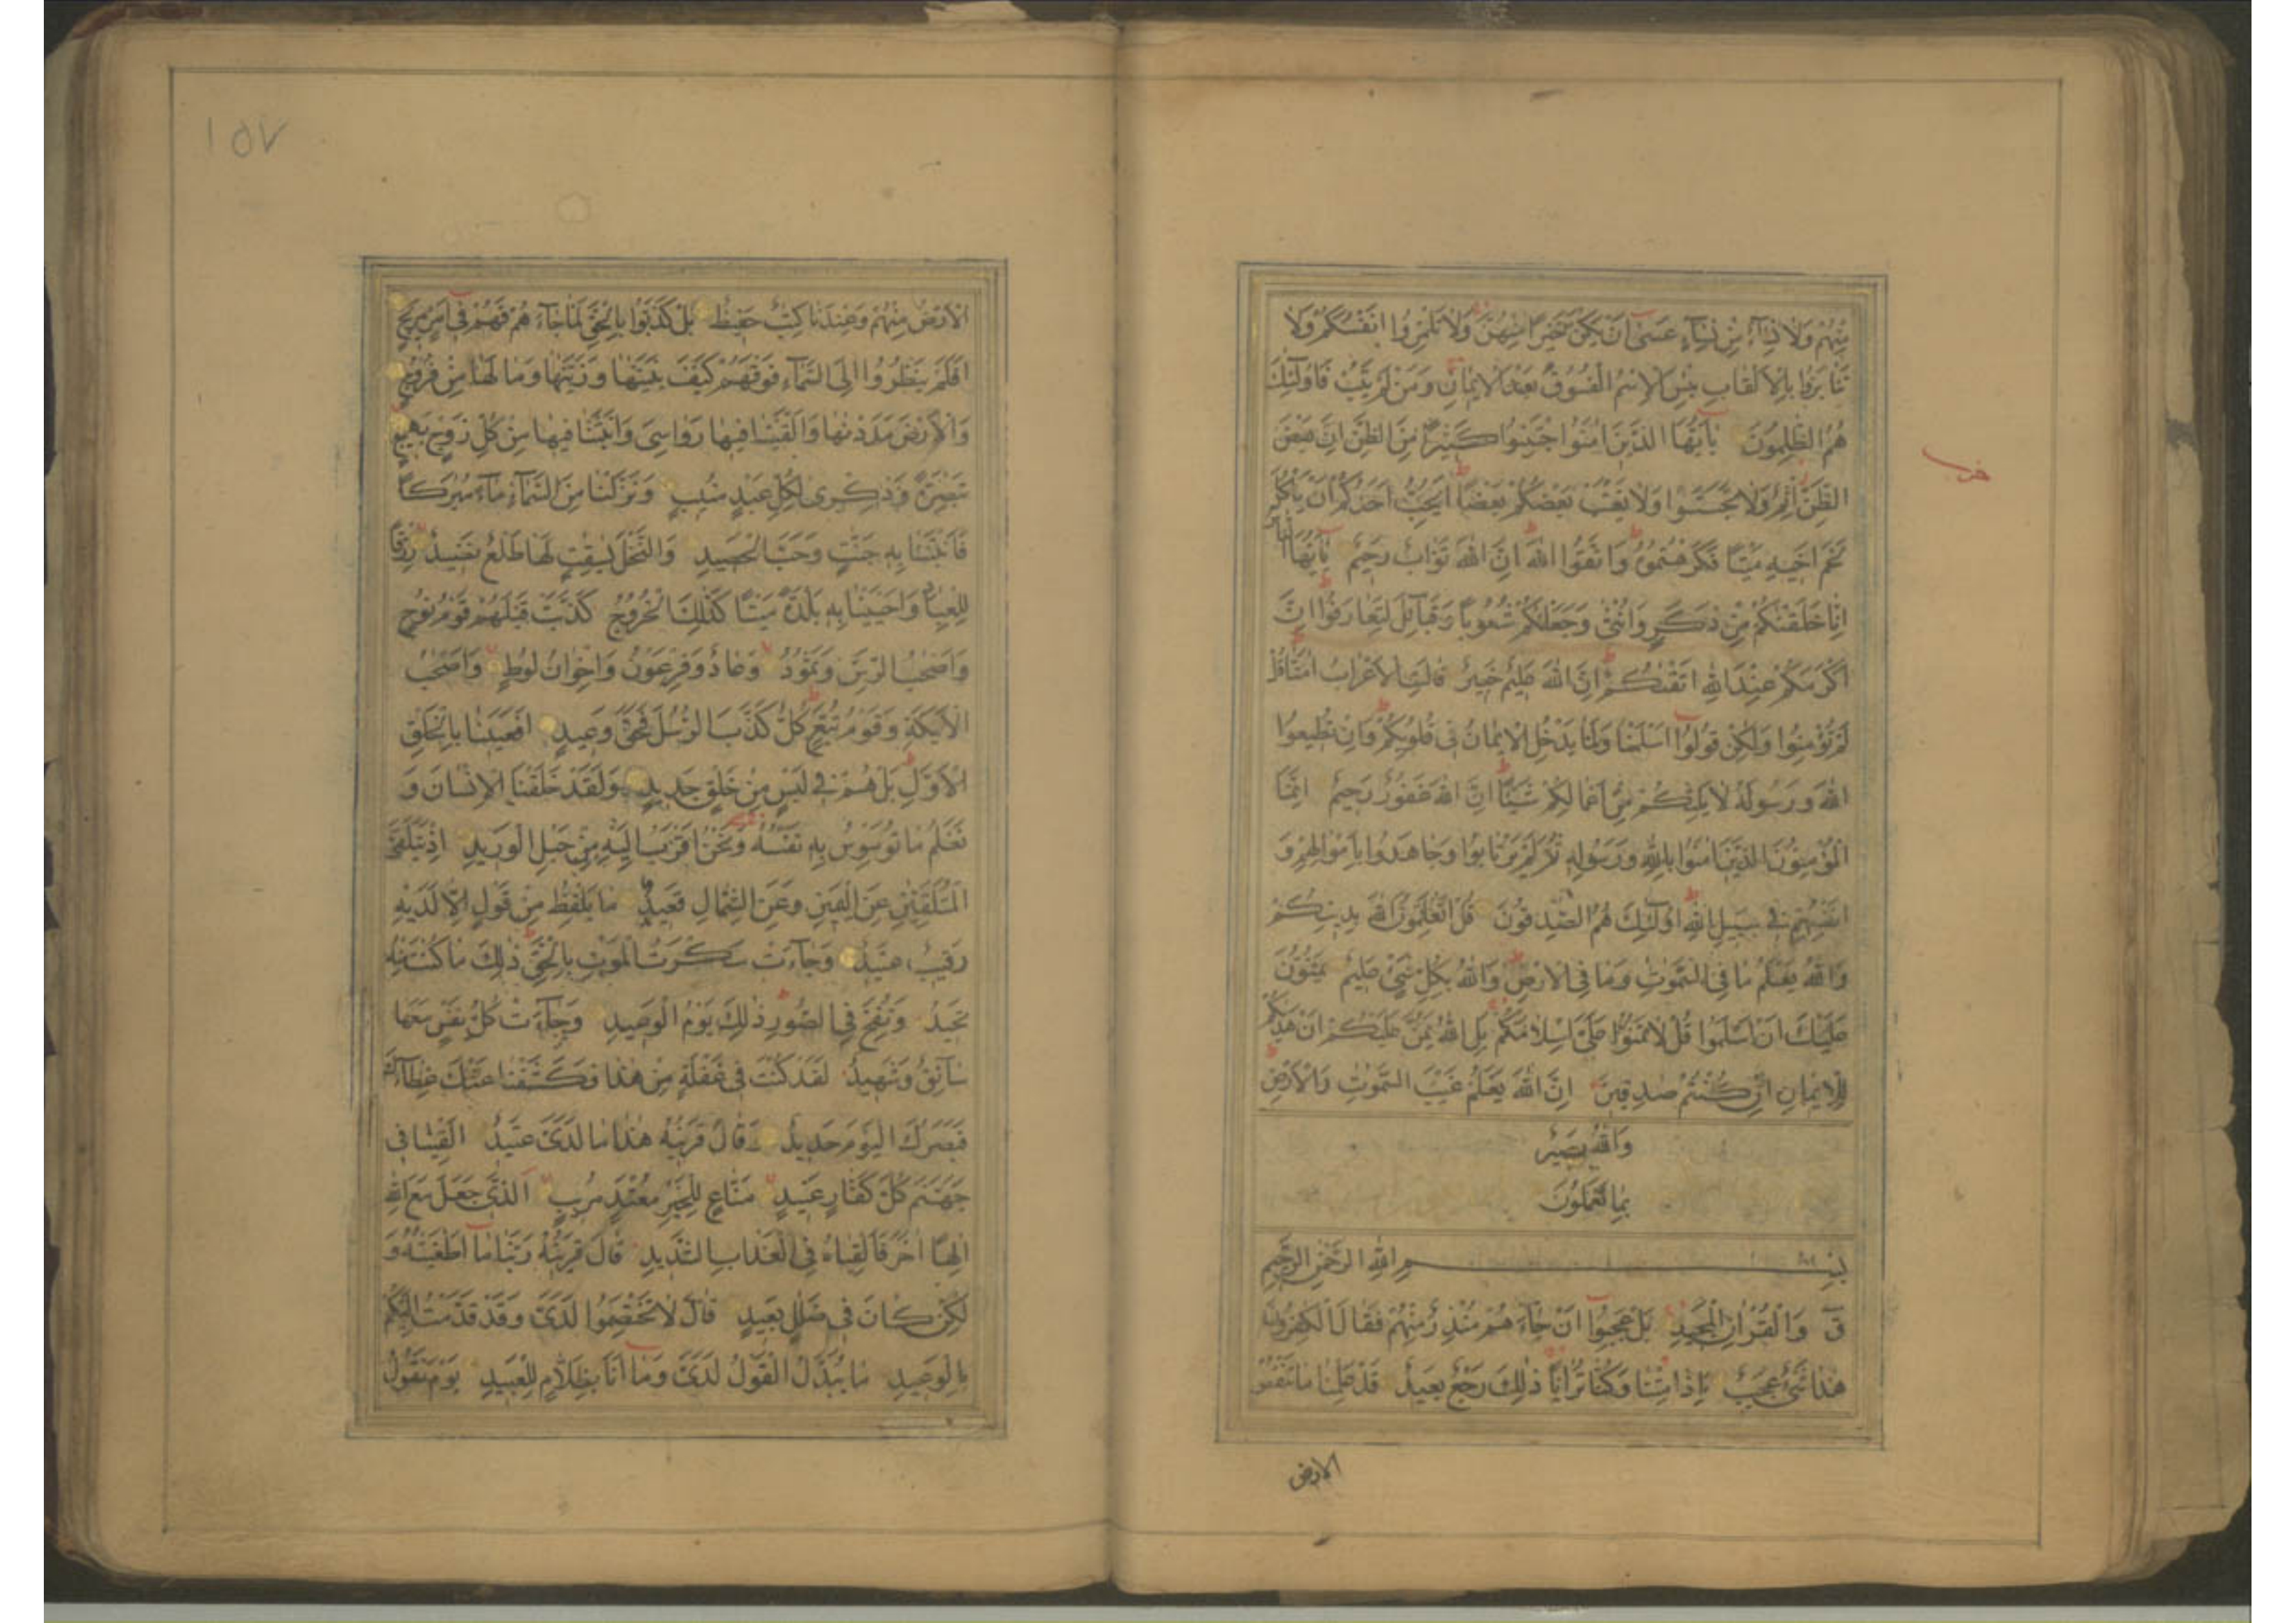 مِنْهُمْ وَلَا نِسَآءٌ مِنْ نِسَآءٍ عَسٰٓى اَنْ يَكُنَّ خَيْرًا مِنْهُنَّ وَلَا تَلْمِزُوا اَنْفُسَكُمْ وَلَا
تَنَابَزُوا بِالْاَلْقَابِ بِئْسَ الْاِسْمُ الْفُسُوقُ بَعْدَ الْاِيمَانِ وَمَنْ لَمْ يَتُبْ فَاُولٰٓئِكَ
هُمُ الظّٰلِمُونَ يٰٓاَيُّهَا الَّذِينَ اٰمَنُوا اجْتَنِبُوا كَثِيرًا مِنَ الظَّنِّ اِنَّ بَعْضَ
الظَّنِّ اِثْمٌ وَلَا تَجَسَّسُوا وَلَا يَغْتَبْ بَعْضُكُمْ بَعْضًا اَيُحِبُّ اَحَدُكُمْ اَنْ يَأْكُلَ
لَحْمَ اَخِيهِ مَيْتًا فَكَرِهْتُمُوهُ وَاتَّقُوا اللّٰهَ اِنَّ اللّٰهَ تَوَّابٌ رَحِيمٌ يٰٓاَيُّهَا النَّاسُ
اِنَّا خَلَقْنٰكُمْ مِنْ ذَكَرٍ وَاُنْثٰى وَجَعَلْنٰكُمْ شُعُوبًا وَقَبَآئِلَ لِتَعَارَفُوا اِنَّ
اَكْرَمَكُمْ عِنْدَ اللّٰهِ اَتْقٰىكُمْ اِنَّ اللّٰهَ عَلِيمٌ خَبِيرٌ قَالَتِ الْاَعْرَابُ اٰمَنَّا قُلْ
لَمْ تُؤْمِنُوا وَلٰكِنْ قُولُوٓا اَسْلَمْنَا وَلَمَّا يَدْخُلِ الْاِيمَانُ فِى قُلُوبِكُمْ وَاِنْ تُطِيعُوا
اللّٰهَ وَرَسُولَهُ لَا يَلِتْكُمْ مِنْ اَعْمَالِكُمْ شَيْئًا اِنَّ اللّٰهَ غَفُورٌ رَحِيمٌ اِنَّمَا
الْمُؤْمِنُونَ الَّذِينَ اٰمَنُوا بِاللّٰهِ وَرَسُولِهِ ثُمَّ لَمْ يَرْتَابُوا وَجَاهَدُوا بِاَمْوَالِهِمْ وَ
اَنْفُسِهِمْ فِى سَبِيلِ اللّٰهِ اُولٰٓئِكَ هُمُ الصّٰدِقُونَ قُلْ اَتُعَلِّمُونَ اللّٰهَ بِدِينِكُمْ
وَاللّٰهُ يَعْلَمُ مَا فِى السَّمٰوٰتِ وَمَا فِى الْاَرْضِ وَاللّٰهُ بِكُلِّ شَىْءٍ عَلِيمٌ يَمُنُّونَ
عَلَيْكَ اَنْ اَسْلَمُوا قُلْ لَا تَمُنُّوا عَلَىَّ اِسْلَامَكُمْ بَلِ اللّٰهُ يَمُنُّ عَلَيْكُمْ اَنْ هَدٰىكُمْ
لِلْاِيمَانِ اِنْ كُنْتُمْ صٰدِقِينَ اِنَّ اللّٰهَ يَعْلَمُ غَيْبَ السَّمٰوٰتِ وَالْاَرْضِ
وَاللّٰهُ بَصِيرٌ
بِمَا تَعْمَلُونَ
بِسْمِ اللّٰهِ الرَّحْمٰنِ الرَّحِيمِ
قٓ وَالْقُرْاٰنِ الْمَجِيدِ بَلْ عَجِبُوٓا اَنْ جَآءَهُمْ مُنْذِرٌ مِنْهُمْ فَقَالَ الْكٰفِرُونَ
هٰذَا شَىْءٌ عَجِيبٌ ءَاِذَا مِتْنَا وَكُنَّا تُرَابًا ذٰلِكَ رَجْعٌ بَعِيدٌ قَدْ عَلِمْنَا مَا تَنْقُصُ
الارض
١٥٧
الْاَرْضُ مِنْهُمْ وَعِنْدَنَا كِتٰبٌ حَفِيظٌ بَلْ كَذَّبُوا بِالْحَقِّ لَمَّا جَآءَهُمْ فَهُمْ فِٓى اَمْرٍ مَرِيجٍ
اَفَلَمْ يَنْظُرُوٓا اِلَى السَّمَآءِ فَوْقَهُمْ كَيْفَ بَنَيْنٰهَا وَزَيَّنّٰهَا وَمَا لَهَا مِنْ فُرُوجٍ
وَالْاَرْضَ مَدَدْنٰهَا وَاَلْقَيْنَا فِيهَا رَوَاسِىَ وَاَنْبَتْنَا فِيهَا مِنْ كُلِّ زَوْجٍ بَهِيجٍ
تَبْصِرَةً وَذِكْرٰى لِكُلِّ عَبْدٍ مُنِيبٍ وَنَزَّلْنَا مِنَ السَّمَآءِ مَآءً مُبٰرَكًا
فَاَنْبَتْنَا بِهِ جَنّٰتٍ وَحَبَّ الْحَصِيدِ وَالنَّخْلَ بٰسِقٰتٍ لَهَا طَلْعٌ نَضِيدٌ رِزْقًا
لِلْعِبَادِ وَاَحْيَيْنَا بِهِ بَلْدَةً مَيْتًا كَذٰلِكَ الْخُرُوجُ كَذَّبَتْ قَبْلَهُمْ قَوْمُ نُوحٍ
وَاَصْحٰبُ الرَّسِّ وَثَمُودُ وَعَادٌ وَفِرْعَوْنُ وَاِخْوَانُ لُوطٍ وَاَصْحٰبُ
الْاَيْكَةِ وَقَوْمُ تُبَّعٍ كُلٌّ كَذَّبَ الرُّسُلَ فَحَقَّ وَعِيدِ اَفَعَيِينَا بِالْخَلْقِ
الْاَوَّلِ بَلْ هُمْ فِى لَبْسٍ مِنْ خَلْقٍ جَدِيدٍ وَلَقَدْ خَلَقْنَا الْاِنْسَانَ وَ
نَعْلَمُ مَا تُوَسْوِسُ بِهِ نَفْسُهُ وَنَحْنُ اَقْرَبُ اِلَيْهِ مِنْ حَبْلِ الْوَرِيدِ اِذْ يَتَلَقَّى
الْمُتَلَقِّيَانِ عَنِ الْيَمِينِ وَعَنِ الشِّمَالِ قَعِيدٌ مَا يَلْفِظُ مِنْ قَوْلٍ اِلَّا لَدَيْهِ
رَقِيبٌ عَتِيدٌ وَجَآءَتْ سَكْرَتُ الْمَوْتِ بِالْحَقِّ ذٰلِكَ مَا كُنْتَ مِنْهُ
تَحِيدُ وَنُفِخَ فِى الصُّورِ ذٰلِكَ يَوْمُ الْوَعِيدِ وَجَآءَتْ كُلُّ نَفْسٍ مَعَهَا
سَآئِقٌ وَشَهِيدٌ لَقَدْ كُنْتَ فِى غَفْلَةٍ مِنْ هٰذَا فَكَشَفْنَا عَنْكَ غِطَآءَكَ
فَبَصَرُكَ الْيَوْمَ حَدِيدٌ وَقَالَ قَرِينُهُ هٰذَا مَا لَدَىَّ عَتِيدٌ اَلْقِيَا فِى
جَهَنَّمَ كُلَّ كَفَّارٍ عَنِيدٍ مَنَّاعٍ لِلْخَيْرِ مُعْتَدٍ مُرِيبٍ اَلَّذِى جَعَلَ مَعَ اللّٰهِ
اِلٰهًا اٰخَرَ فَاَلْقِيَاهُ فِى الْعَذَابِ الشَّدِيدِ قَالَ قَرِينُهُ رَبَّنَا مَآ اَطْغَيْتُهُ وَ
لٰكِنْ كَانَ فِى ضَلٰلٍ بَعِيدٍ قَالَ لَا تَخْتَصِمُوا لَدَىَّ وَقَدْ قَدَّمْتُ اِلَيْكُمْ
بِالْوَعِيدِ مَا يُبَدَّلُ الْقَوْلُ لَدَىَّ وَمَآ اَنَا بِظَلَّامٍ لِلْعَبِيدِ يَوْمَ نَقُولُ